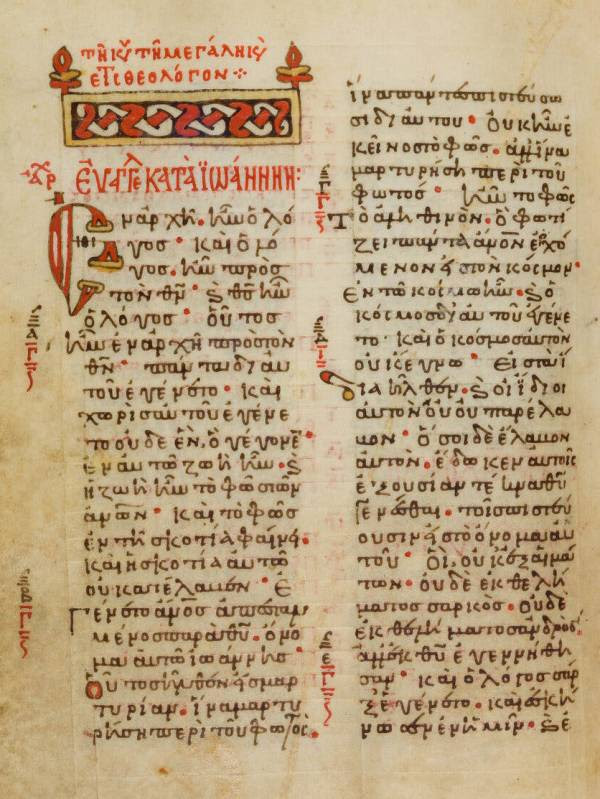 τῆ κυ τῆ μεγάλη κυ
εὐαγγε κατὰ ϊωάννην:
Ἐν ἀρχῆ ἦν ὁ λό
γος· καὶ ὁ λό
γος ἦν πρὸς
τὸν θν· καὶ θς ἦν
ὁ λόγος· οὗτος
ἦν ἐν ἀρχῆ πρὸς τὸν
θν· πάντα δι αυ
τοῦ ἐγένετο· καὶ
χωρὶς αὐτοῦ ἐγένε
το οὐδὲ ἕν, ὃ γέγονε·
ἐν αὐτῶ ζωὴ ἦν· καὶ
ἡ ζωὴ ἦν τὸ φῶς τῶν
ἀνων· καὶ τὸ φῶς
ἐν τῆ σκοτία φαίνει·
καὶ ἡ σκοτία αὐτὼ
οὐ κατέλαβεν· Ἐ
γένετο ἀνος ἀπεσταλ
μένος παρὰ θυ· ὄνο
μα αὐτῶ ἰωάννης·
Οὗτος ἦλθεν εἰς μαρ
τυρίαν· ἵνα μαρτυ
ρήση περὶ τοῦ φωτός·
ἵνα πάντες πιστεύσω
σι δι αὐτοῦ· Οὐκ ἦν ἐ
κεῖνος τὸ φῶς· ἀλλ ἵνα
μαρτυρήση περὶ τοῦ
φωτός· ἦν τὸ φῶς
Τὸ ἀληθινόν· ὃ φωτί
ζει πάντα ἀνον ἐρχό
μενον εἰς τὸν κόσμον·
Ἐν τῶ κόσμω ἦν· καὶ ὁ
κόσμος δι αὐτοῦ ἐγένε
το· Καὶ ὁ κόσμος αὐτὸν
οὐκ ἔγνω· Εἰς τὰ ἴ
δια ἦλθεν· καὶ οἱ ἴδιοι
αὐτὸν οὐ παρέλα
βον· ὅσοι δὲ ἔλαβον
αὐτὸν· ἔδωκεν αὐτοῖς
ἐξουσίαν τέκνα θυ
γενέσθαι· τοῖς πιστεύ
ουσιν εἰς τὸ ὄνομα αὐ
τοῦ· Οἳ, οὐκ ἐξ αἱμά
των· οὐδὲ ἐκ θελή
ματος σαρκὸς· Οὐδὲ
ἐκ θελήματος ἀνδρός·
ἀλλ ἐκ θυ ἐγεννήθη
σαν· καὶ ὁ λόγος σαρ
ξ ἐγένετο· καὶ ἐσκή
νωσεν ἐν ἡμῖν· καὶ ἐ